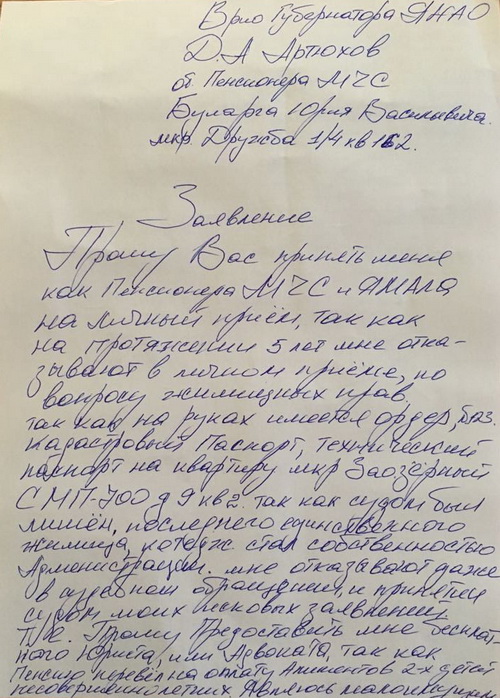 Врио Губернатора ЯНАО
Д.А Артюхов
от Пенсионера МЧС
Буларга Юрия Васильевича.
мкр. Дружба 1/4 кв 162.
Заявление
Прошу Вас принять меня
как Пенсионера МЧС и ЯМАЛА
на личный приём, так как
на протяжении 5 лет мне отка-
зывают в личном приёме, по
вопросу жилищных прав,
так как на руках имеется ордер,
кадастровый Паспорт, технический
паспорт на квартиру мкр Заозёрный
СМП-700 д 9 кв 2. так как судом был
лишён, последнего единственного
жилища, стал собственностью
Администрации. мне отказывают даже
в судебном обращении, и принятии
судом моих исковых заявлений
Прошу Предоставить мне бесплат-
ного Юриста, или Адвоката, так как
Пенсию перевёл на оплату Алиментов 2-х детей
несовершеннолетних. Являюсь